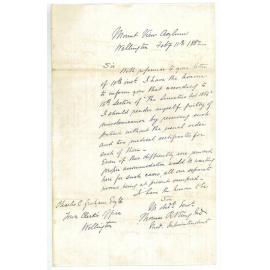 Mount View Asylum
Wellington Feby 11th 1882
Sir
With reference to your letter
of 10th inst. I have the honour
to inform you that according to
16th Section of "The Lunatics Act 1868"
I should render myself guilty of
misdemeanour by receiving such
patient without the usual order
and two medical certificates for
each of them.
Even if this difficulty were removed
proper accommodation would be wanting
here for such cases, all our separate
rooms being at present occupied.
I have the honour to be
Sir
Yr obdt Servt
Thomas
Charles C Graham Esqre
Town Clerk's Office
Wellington